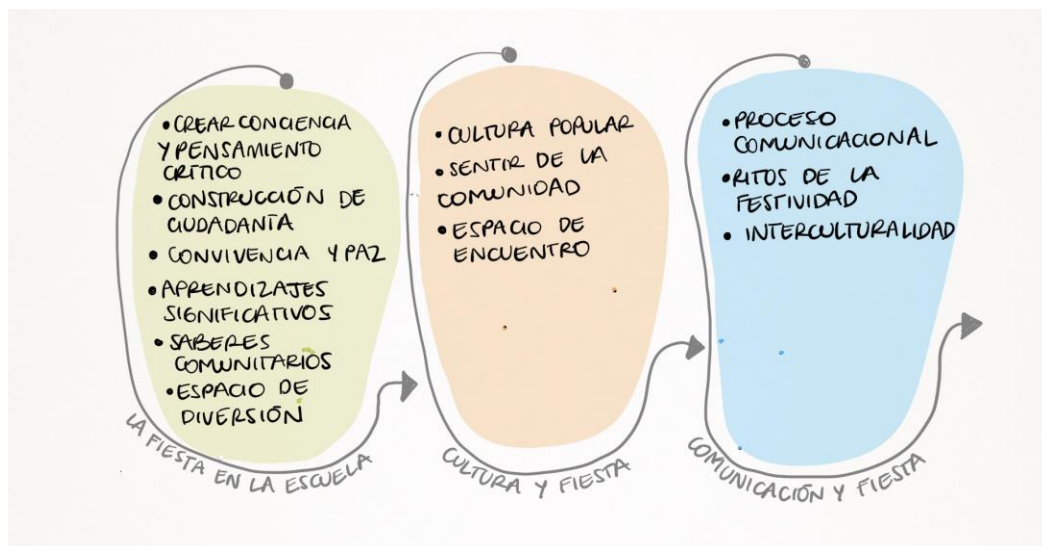 • CREAR CONCIENCIA
Y PENSAMIENTO
CRÍTICO
• CONSTRUCCIÓN DE
CIUDADANÍA
• CONVIVENCIA Y PAZ
• APRENDIZAJES
SIGNIFICATIVOS
• SABERES
COMUNITARIOS
• ESPACIO DE
DIVERSIÓN
LA FIESTA EN LA ESCUELA
• CULTURA POPULAR
• SENTIR DE LA
COMUNIDAD
• ESPACIO DE
ENCUENTRO
CULTURA Y FIESTA
• PROCESO
COMUNICACIONAL
• RITOS DE LA
FESTIVIDAD
• INTERCULTURALIDAD
COMUNICACIÓN Y FIESTA